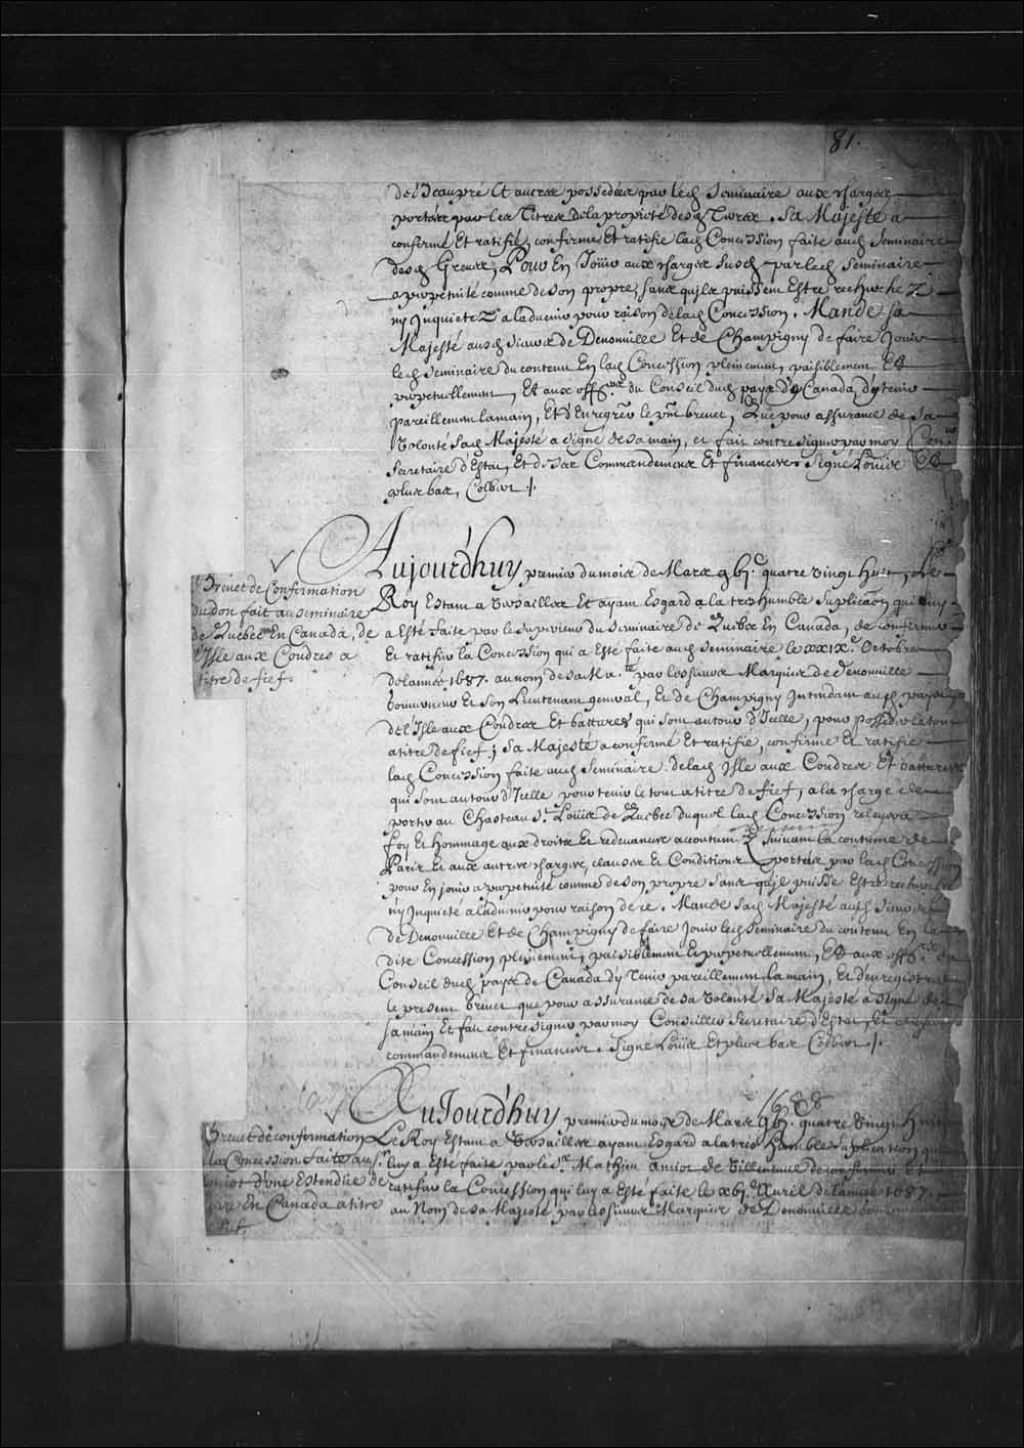 81.
de Beaupré Et autres possedées par led. Seminaire aux charges
portées par les Titres de la proprieté desd. Terres. Sa Majesté a
confirmé Et ratifié, confirme Et ratifie lad. Concession faite aud. Seminaire
desd. Greves, Pour En Joüir aux charges susd. par led. Seminaire
a perpetuité comme de son propre, sans qu'ils puissent Estre recherchez
ny Inquietez a l'advenir pour raison de lad. Concession. Mande sa
Majesté ausd. Sieurs de Denonville Et de Champigny de faire Jouir
led. Seminaire du contenu En lad. Concession pleinement, paisiblement Et
perpetuellement, Et aux offers. du Conseil dud. pays de Canada d'y tenir
pareillement la main, Et d'Enregrer. le pnt brevet, Que pour assurance de sa
Volonté Sad. Majesté a signé de sa main, et fait contresigner par moy Conser.
Secretaire d'Estat, Et de ses Commandemens Et finances. Signé Loüis Et
plus bas, Colbert /.
Aujourd'huy premier du mois de Mars gbjc. quatre vingt huit, Le
Roy Estant a Versailles Et ayant Esgard a la tres humble Suplicaon qui luy
a Esté faite par le superieur du Seminaire de Quebec En Canada, de confirmer
Et ratifier la Concession qui a Esté faite aud. Seminaire le xxixe. Octobre
de l'année 1687. au nom de sa Ma.té par les sieurs Marquis de Denonville
Gouverneur Et son Lieutenant general, Et de Champigny Intendant aud. pays
de l'Isle aux Coudres Et battures qui sont autour d'Icelle, pour posseder le tout
a titre de fief; Sa Majesté a confirmé Et ratifié, confirme Et ratifie
lad. Concession faite aud. Seminaire de lad. Isle aux Coudres Et battures
qui sont autour d'Icelle pour tenir le tout a titre de fief, a la charge de
porter au Chasteau St. Loüis de Quebec duquel lad. Concession relevera
foy Et hommage aux droits Et redevances accoutumez suivant la coutume de
Paris Et aux autres charges, clauses Et Conditions portées par lad. Concession
pour En jouir a perpetuité comme de son propre sans qu'il puisse Estre recherché
ny Inquieté a l'advenir pour raison de ce. Mande Sad. Majesté ausd. Sieurs
de Denonville Et de Champigny de faire Jouir led. Seminaire du contenu En la
dite Concession pleinement, paisiblement Et perpetuellement, Et aux offers. du
Conseil dud. pays de Canada d'y Tenir pareillement la main, Et d'enregistrer
le present brevet que pour assurance de sa Volonté Sa Majesté a signé de
sa main Et fait contresigner par moy Conseiller Secretaire d'Estat, Et de ses
commandemens Et finances. Signé Loüis Et plus bas Colbert /.
Brevet de Confirmation
du don fait au Seminaire
de Quebec En Canada, de
l'Isle aux Coudres a
titre de fief.
1688
AuJourd'huy premier du mois de Mars gbjc. quatre vingt huit
Le Roy Estant a Versailles ayant Esgard a la tres humble Suplication qui
luy a Esté faite par le Sr. Mathieu amiot de Villeneuve de confirmer Et
ratifier la Concession qui luy a Esté faite le xbje. Avril de l'année 1687.
au Nom de sa Majesté par les sieurs Marquis de Denonville
Brevet de confirmation
la Concession faite au Sr.
amiot d'une Estendüe de
En Canada a titre